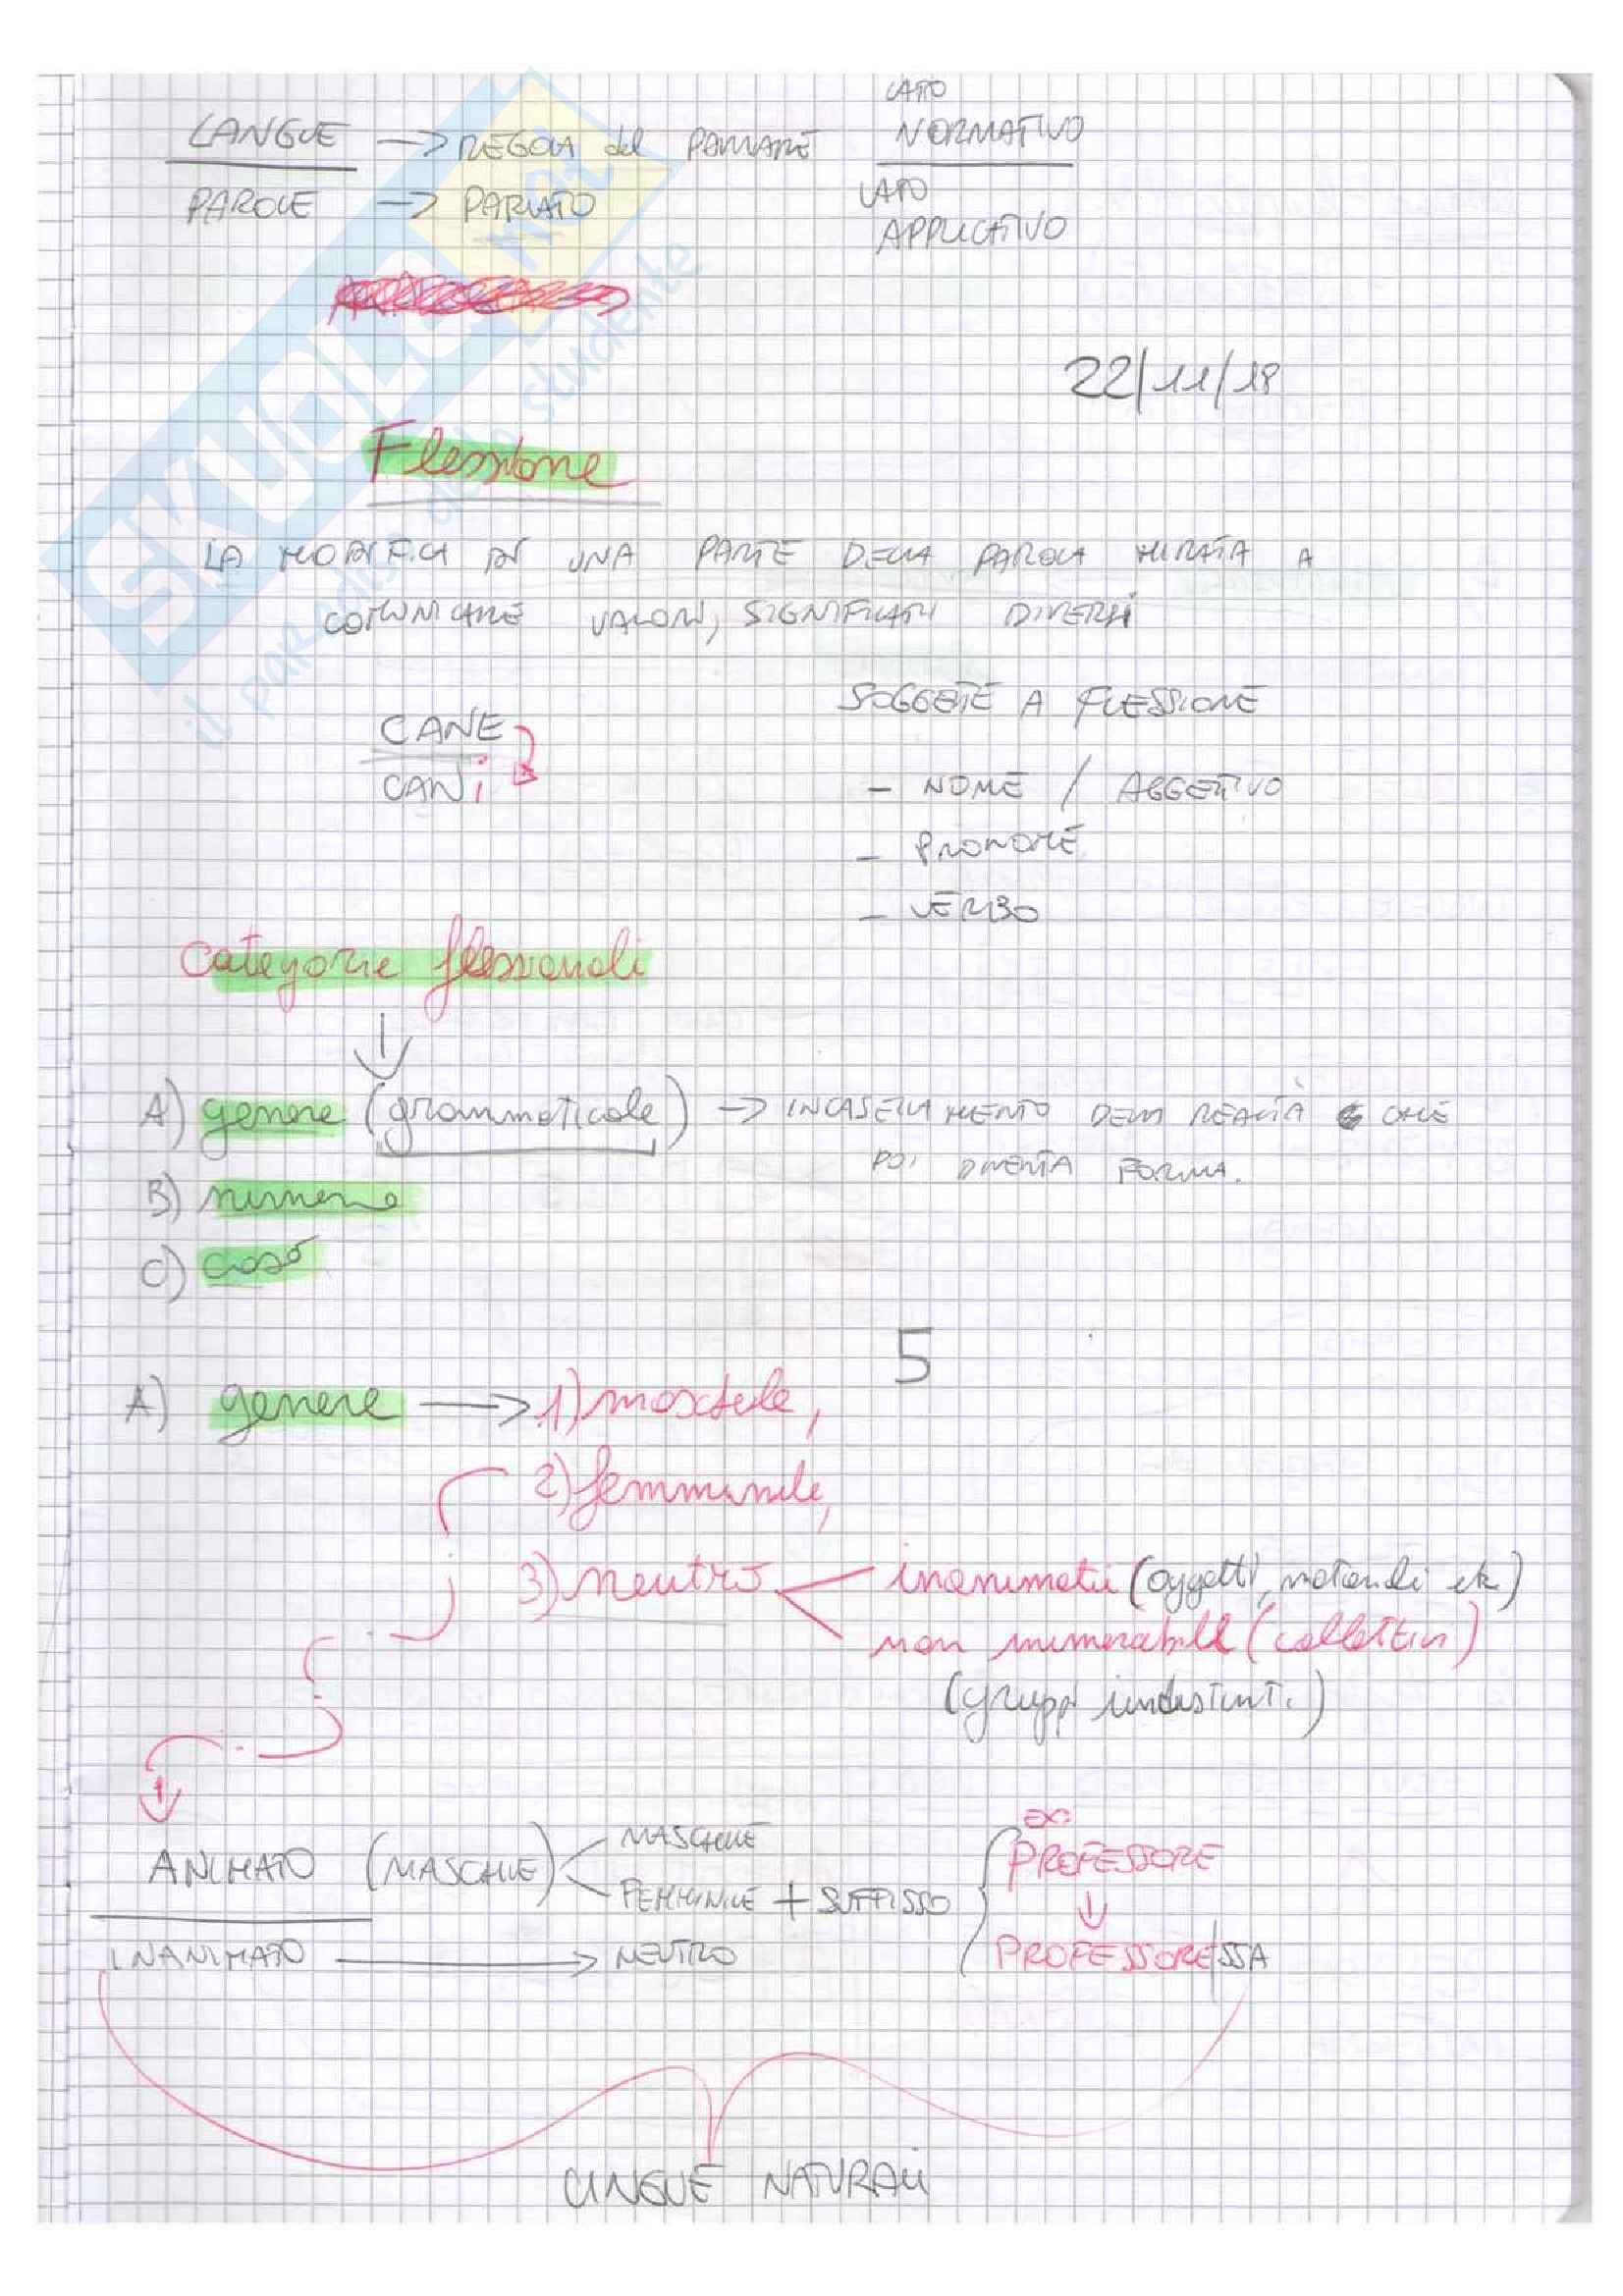 LATO
LANGUE → REGOLA del PARLARE NORMATIVO
PAROLE → PARLATO LATO
APPLICATIVO
22/11/18
Flessione
LA MODIFICA DI UNA PARTE DELLA PAROLA MIRATA A
COMUNICARE VALORI, SIGNIFICATI DIVERSI
SOGGETTE A FLESSIONE
CANE
CANi
- NOME / AGGETTIVO
- PRONOME
- VERBO
Categorie flessionali
A) genere (grammaticale) → INCASELLAMENTO DELLA REALTÀ CHE
POI DIVENTA FORMA.
B) numero
C) caso
5
A) genere → 1) maschile,
2) femminile,
3) neutro inanimati (oggetti, materiali etc)
non numerabili (collettivi)
(gruppi indistinti)
ex:
ANIMATO (MASCHILE) MASCHILE PROFESSORE
FEMMINILE + SUFFISSO
INANIMATO → NEUTRO PROFESSORE/SSA
LINGUE NATURALI
SKUOLA.net
il paradiso dello studente